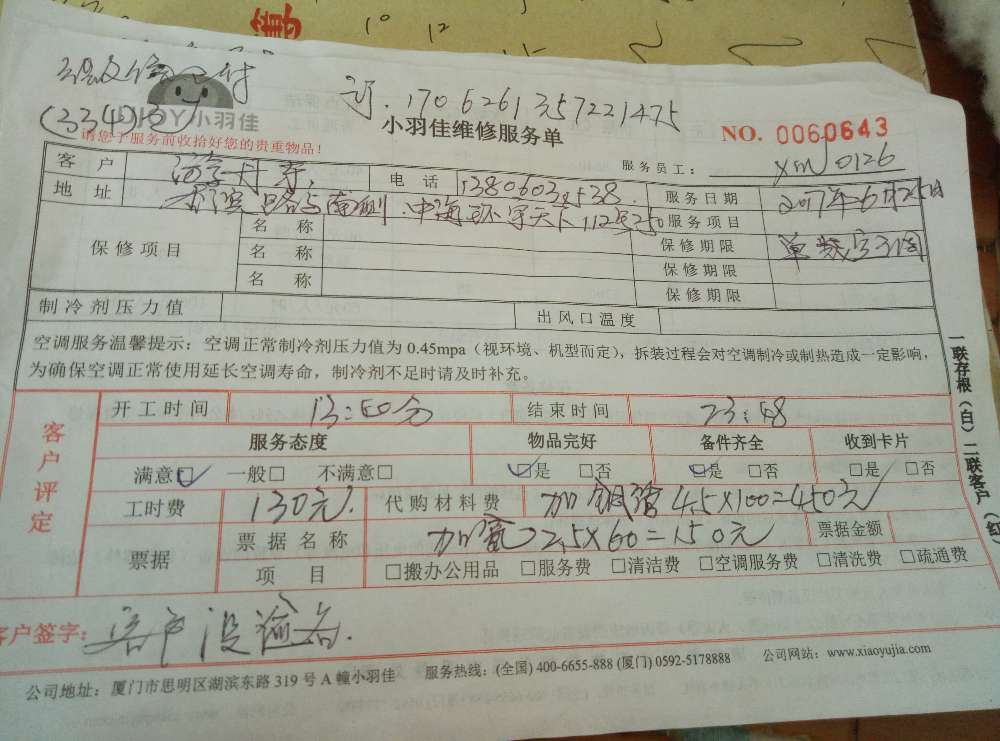 (234)
小羽佳
1706261357221475
小羽佳维修服务单
NO. 0060643
请您于服务前收拾好您的贵重物品!
服务员工: xm0126
客户 电话 服务日期 2017年6月25日
地址 中海环宇天下 服务项目
保修项目 名称 保修期限
名称 保修期限
名称 保修期限
制冷剂压力值 出风口温度
空调服务温馨提示:空调正常制冷剂压力值为 0.45mpa(视环境、机型而定),拆装过程会对空调制冷或制热造成一定影响,
为确保空调正常使用延长空调寿命,制冷剂不足时请及时补充。
一联存根(白)二联客户(红)
客户评定
开工时间 13:50分 结束时间 23:58
服务态度 物品完好 备件齐全 收到卡片
满意□ 一般□ 不满意□ □是 □否 □是 □否 □是 □否
工时费 130元 代购材料费 加铜管4.5×100=450元
票据 票据名称 加氟2.5×60=150元 票据金额
项目 □搬办公用品 □服务费 □清洁费 □空调服务费 □清洗费 □疏通费
客户签字: 客户没
公司地址:厦门市思明区湖滨东路 319 号 A 幢小羽佳 服务热线:(全国) 400-6655-888 (厦门) 0592-5178888 公司网站:www.xiaoyujia.com